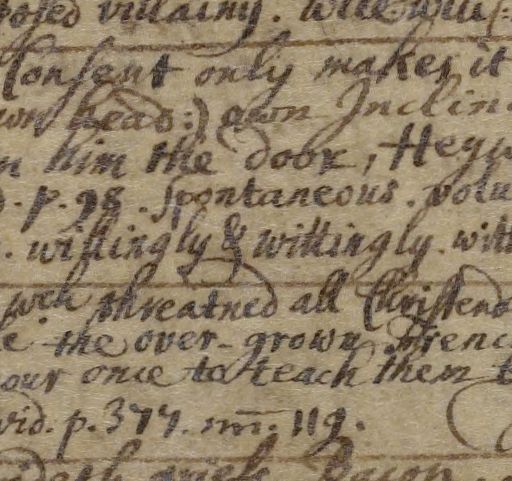 posed villainy. will
Consent only makes it
own head:) own Inclin
him the door, Hegu
p. 98. spontaneous. volu
. willingly & wittingly. witt
wch threatned all Christend
the over-grown Frenc
our once to teach them t
vid. p. 377. m. 119.